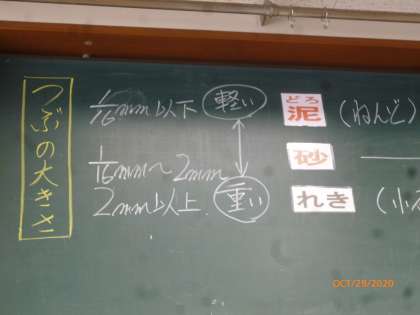 つぶの大きさ
1/16mm以下 軽い どろ 泥 (ねんど)
1/16mm〜2mm 砂
2mm以上 重い れき (小
OCT/29/2020